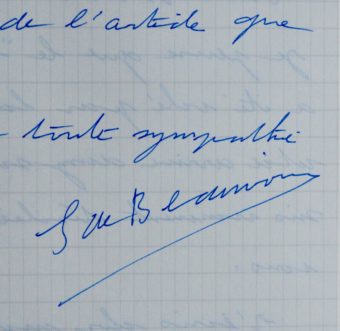 de l'article que
toute sympathie
S de Beauvoir